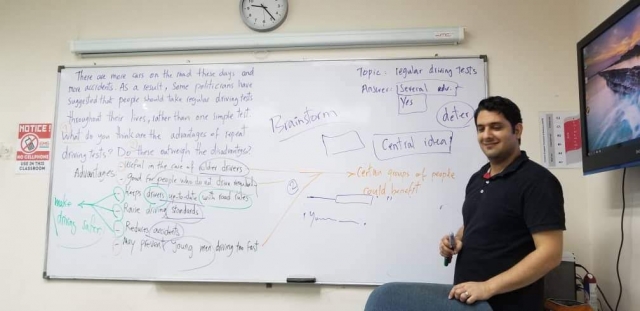 There are more cars on the road these days and
more accidents. As a result, Some politicians have
suggested that people should take regular driving tests
throughout their lives, rather than one simple test
What do you think are the advantages of repeat
driving tests? Do these outweigh the disadvantages?
Advantages
- Useful in the case of older drivers
- Good for people who do not drive regularly
- Keeps drivers up-to-date with road rules
- Raise driving standards
- Reduce accidents
- May prevent young men driving too fast
make
driving safer
Brainstorm
Topic: regular driving tests
Answer: Several adv.
Yes
deter
Central idea
Certain groups of people
could benefit
NOTICE
NO CELLPHONE
USE IN THIS
CLASSROOM